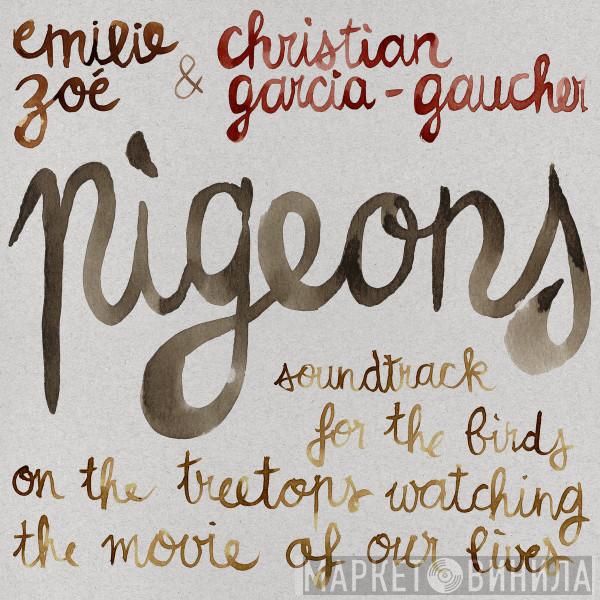 emilie & christian
zoé garcia-gaucher
pigeons
soundtrack
for the birds
on the treetops watching
the movie of our lives
МАРКЕТ ВИНИЛА